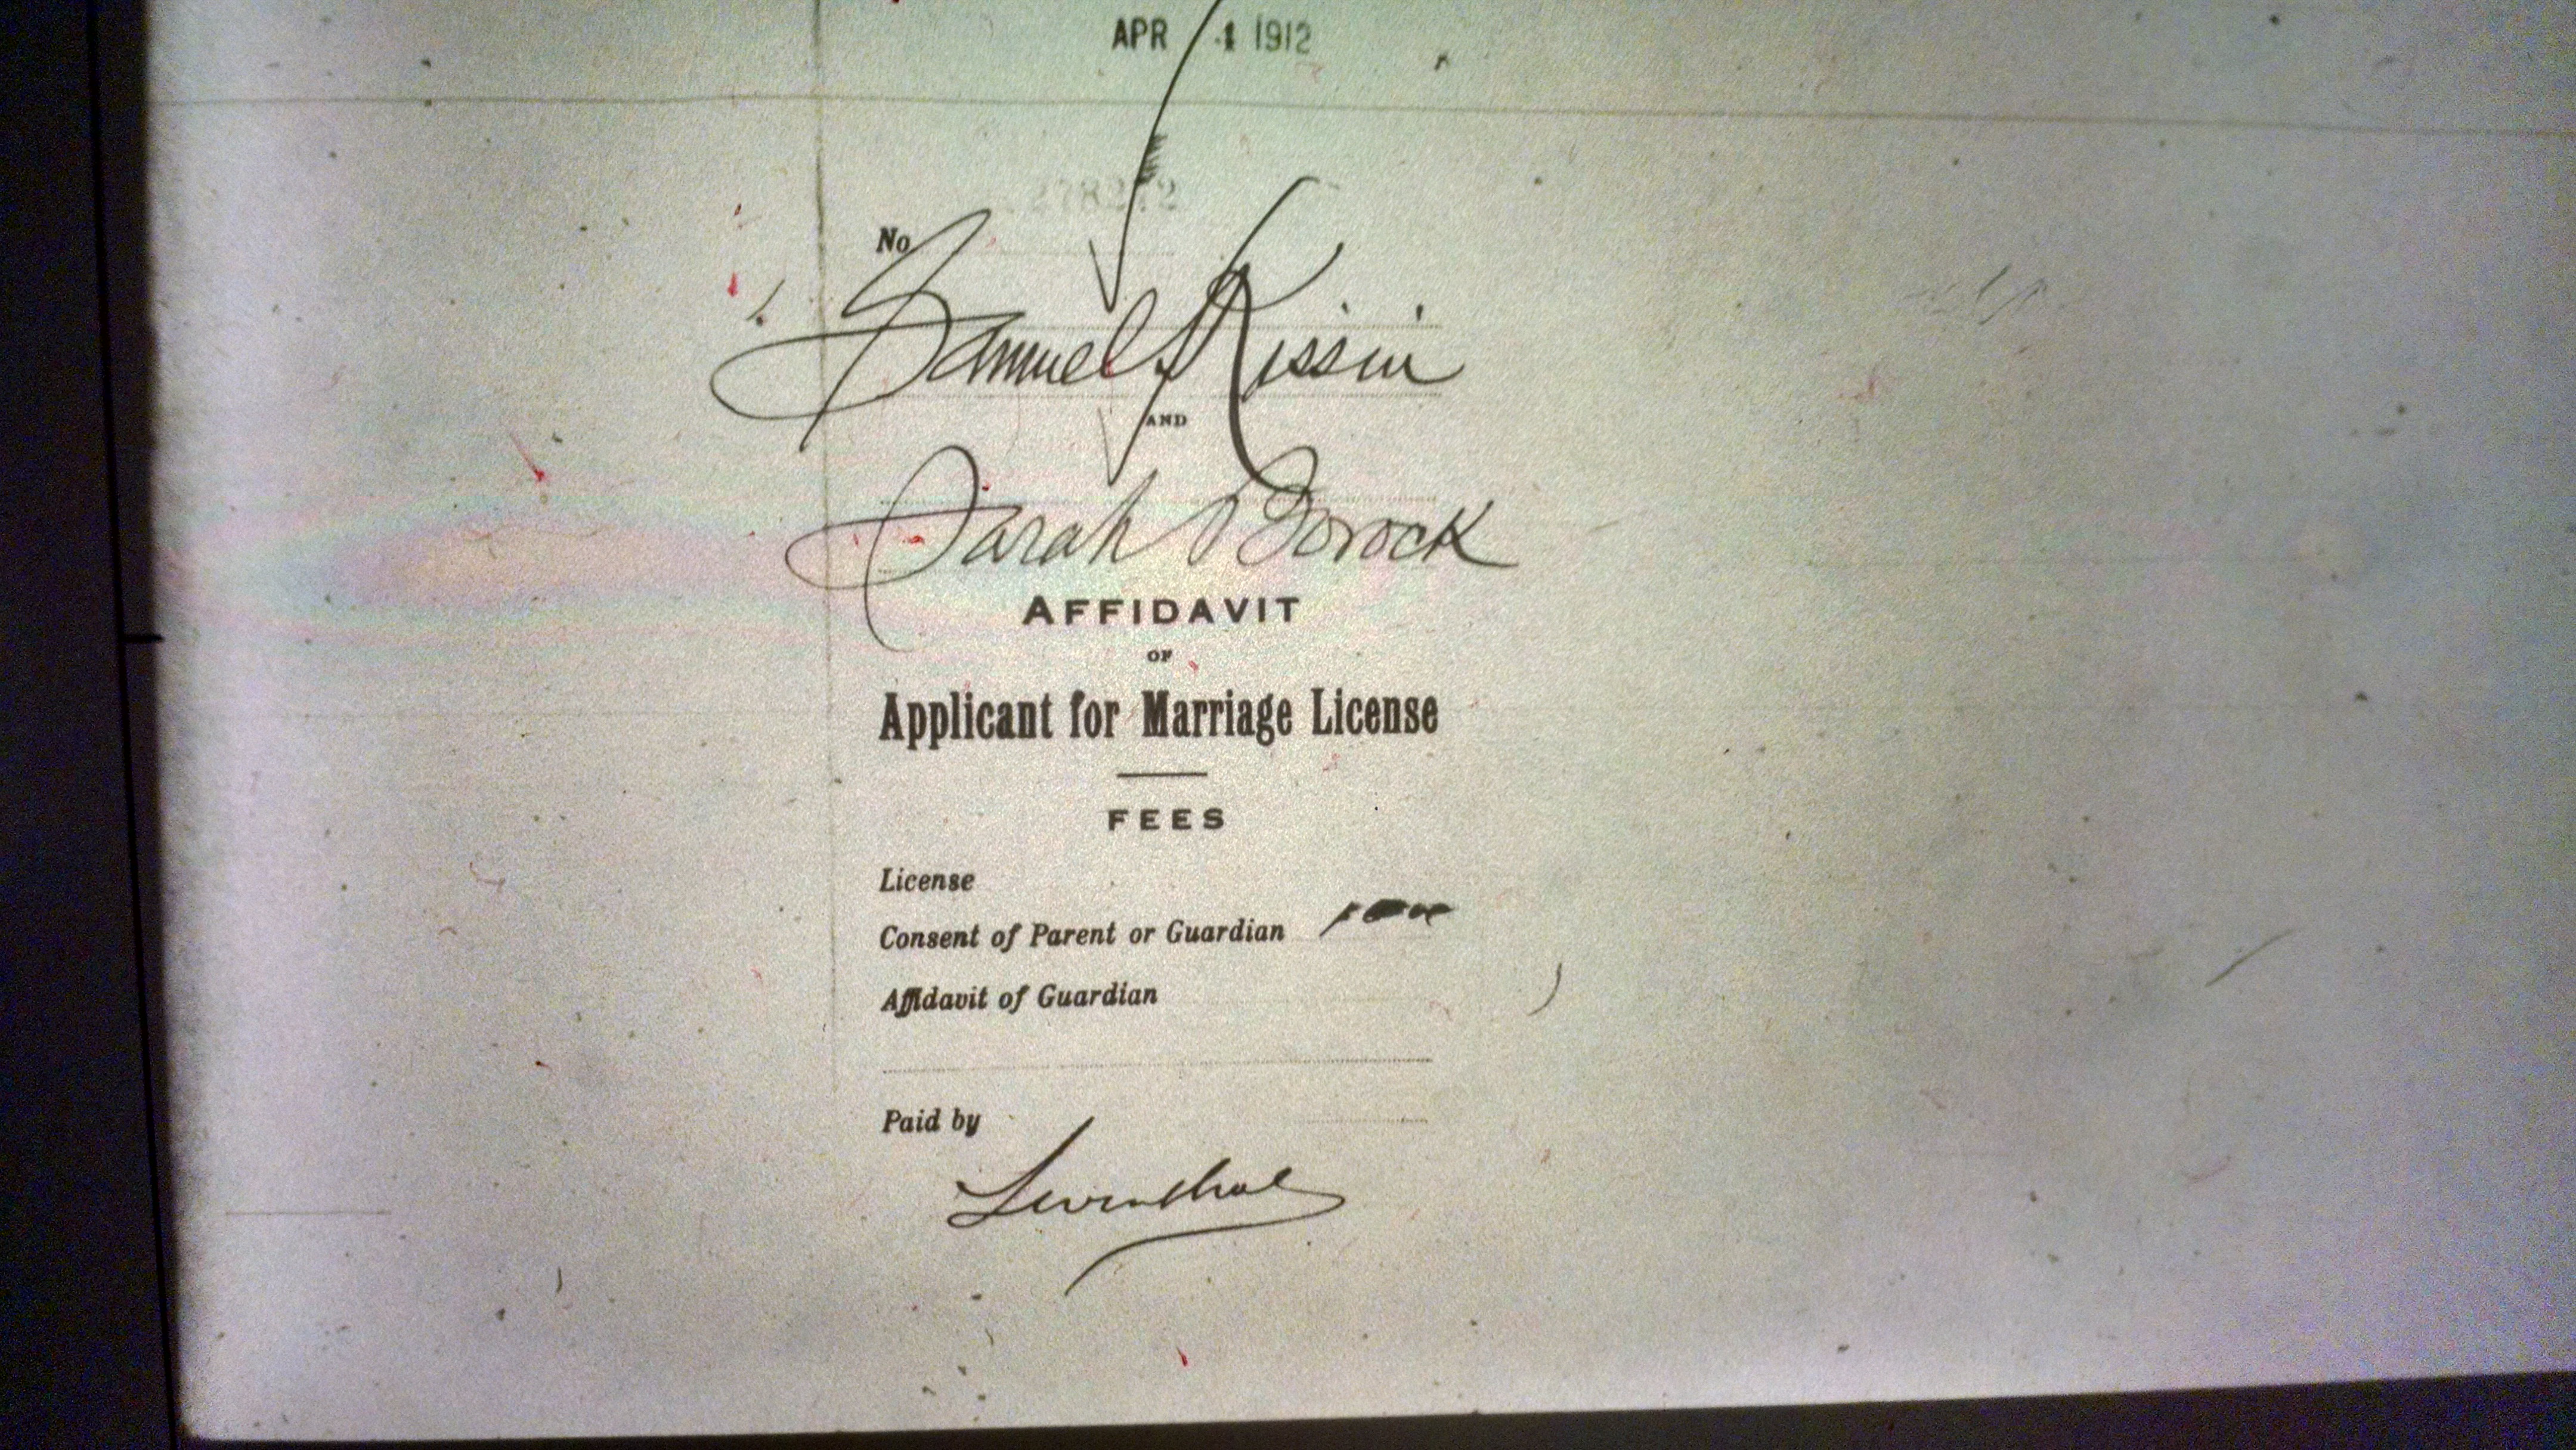 APR 1 1912
No
Samuel Kissin
AND
Sarah Borock
AFFIDAVIT
OF
Applicant for Marriage License
FEES
License
Consent of Parent or Guardian
Affidavit of Guardian
Paid by
Leventhal